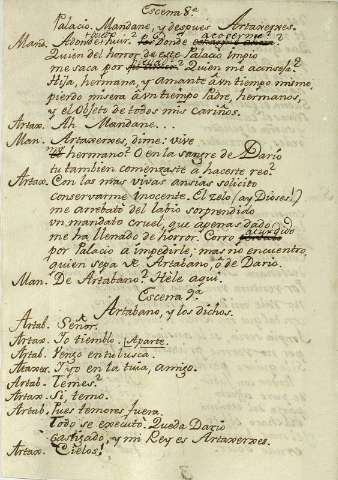 Escena 8ª
Palacio. Mandane, y despues Artaxerxes.
Man. Adonde huir? Donde acogerme?
Quien del horror de este Palacio impio
me saca por piedad? Quien me aconseja?
Hija, hermana, y amante â vn tiempo mismo,
pierdo misera â vn tiempo Padre, hermanos,
y el objeto de todos mis cariños.
Artax. Ah Mandane...
Man. Artaxerxes, dime: vive
mi hermano? O en la sangre de Darío
tu tambien comenzaste â hacerte reo?
Artax. Con las mas vivas ansias solicito
conservarme inocente. El zelo (ay Dioses!)
me arrebató del labio sorprendido
vn mandato cruel, que apenas dado
me ha llenado de horror. Corro acuitadido
por Palacio â impedirle; mas no encuentro
quien sepa de Artabano, ô de Dario.
Man. De Artabano? Héle aqui.
Escena 9ª
Artabano, y los dichos.
Artab. Señor.
Artax. Yo tiemblo. Aparte.
Artab. Vengo en tu busca.
Ataxes. Y yo en la tuia, amigo.
Artab. Temes?
Artax. Si, temo.
Artab. Pues temores fuera.
Todo se executò. Queda Dario
castigado, y mi Rey es Artaxerxes.
Artax. Cielos!